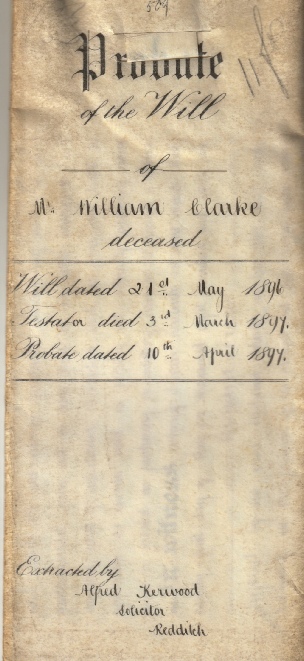 Probate
of the Will
of
Mr. William Clarke
deceased
Will dated 21st May 1896
Testator died 3rd March 1897.
Probate dated 10th April 1897.
Extracted by
Alfred Kerwood
Solicitor
Redditch